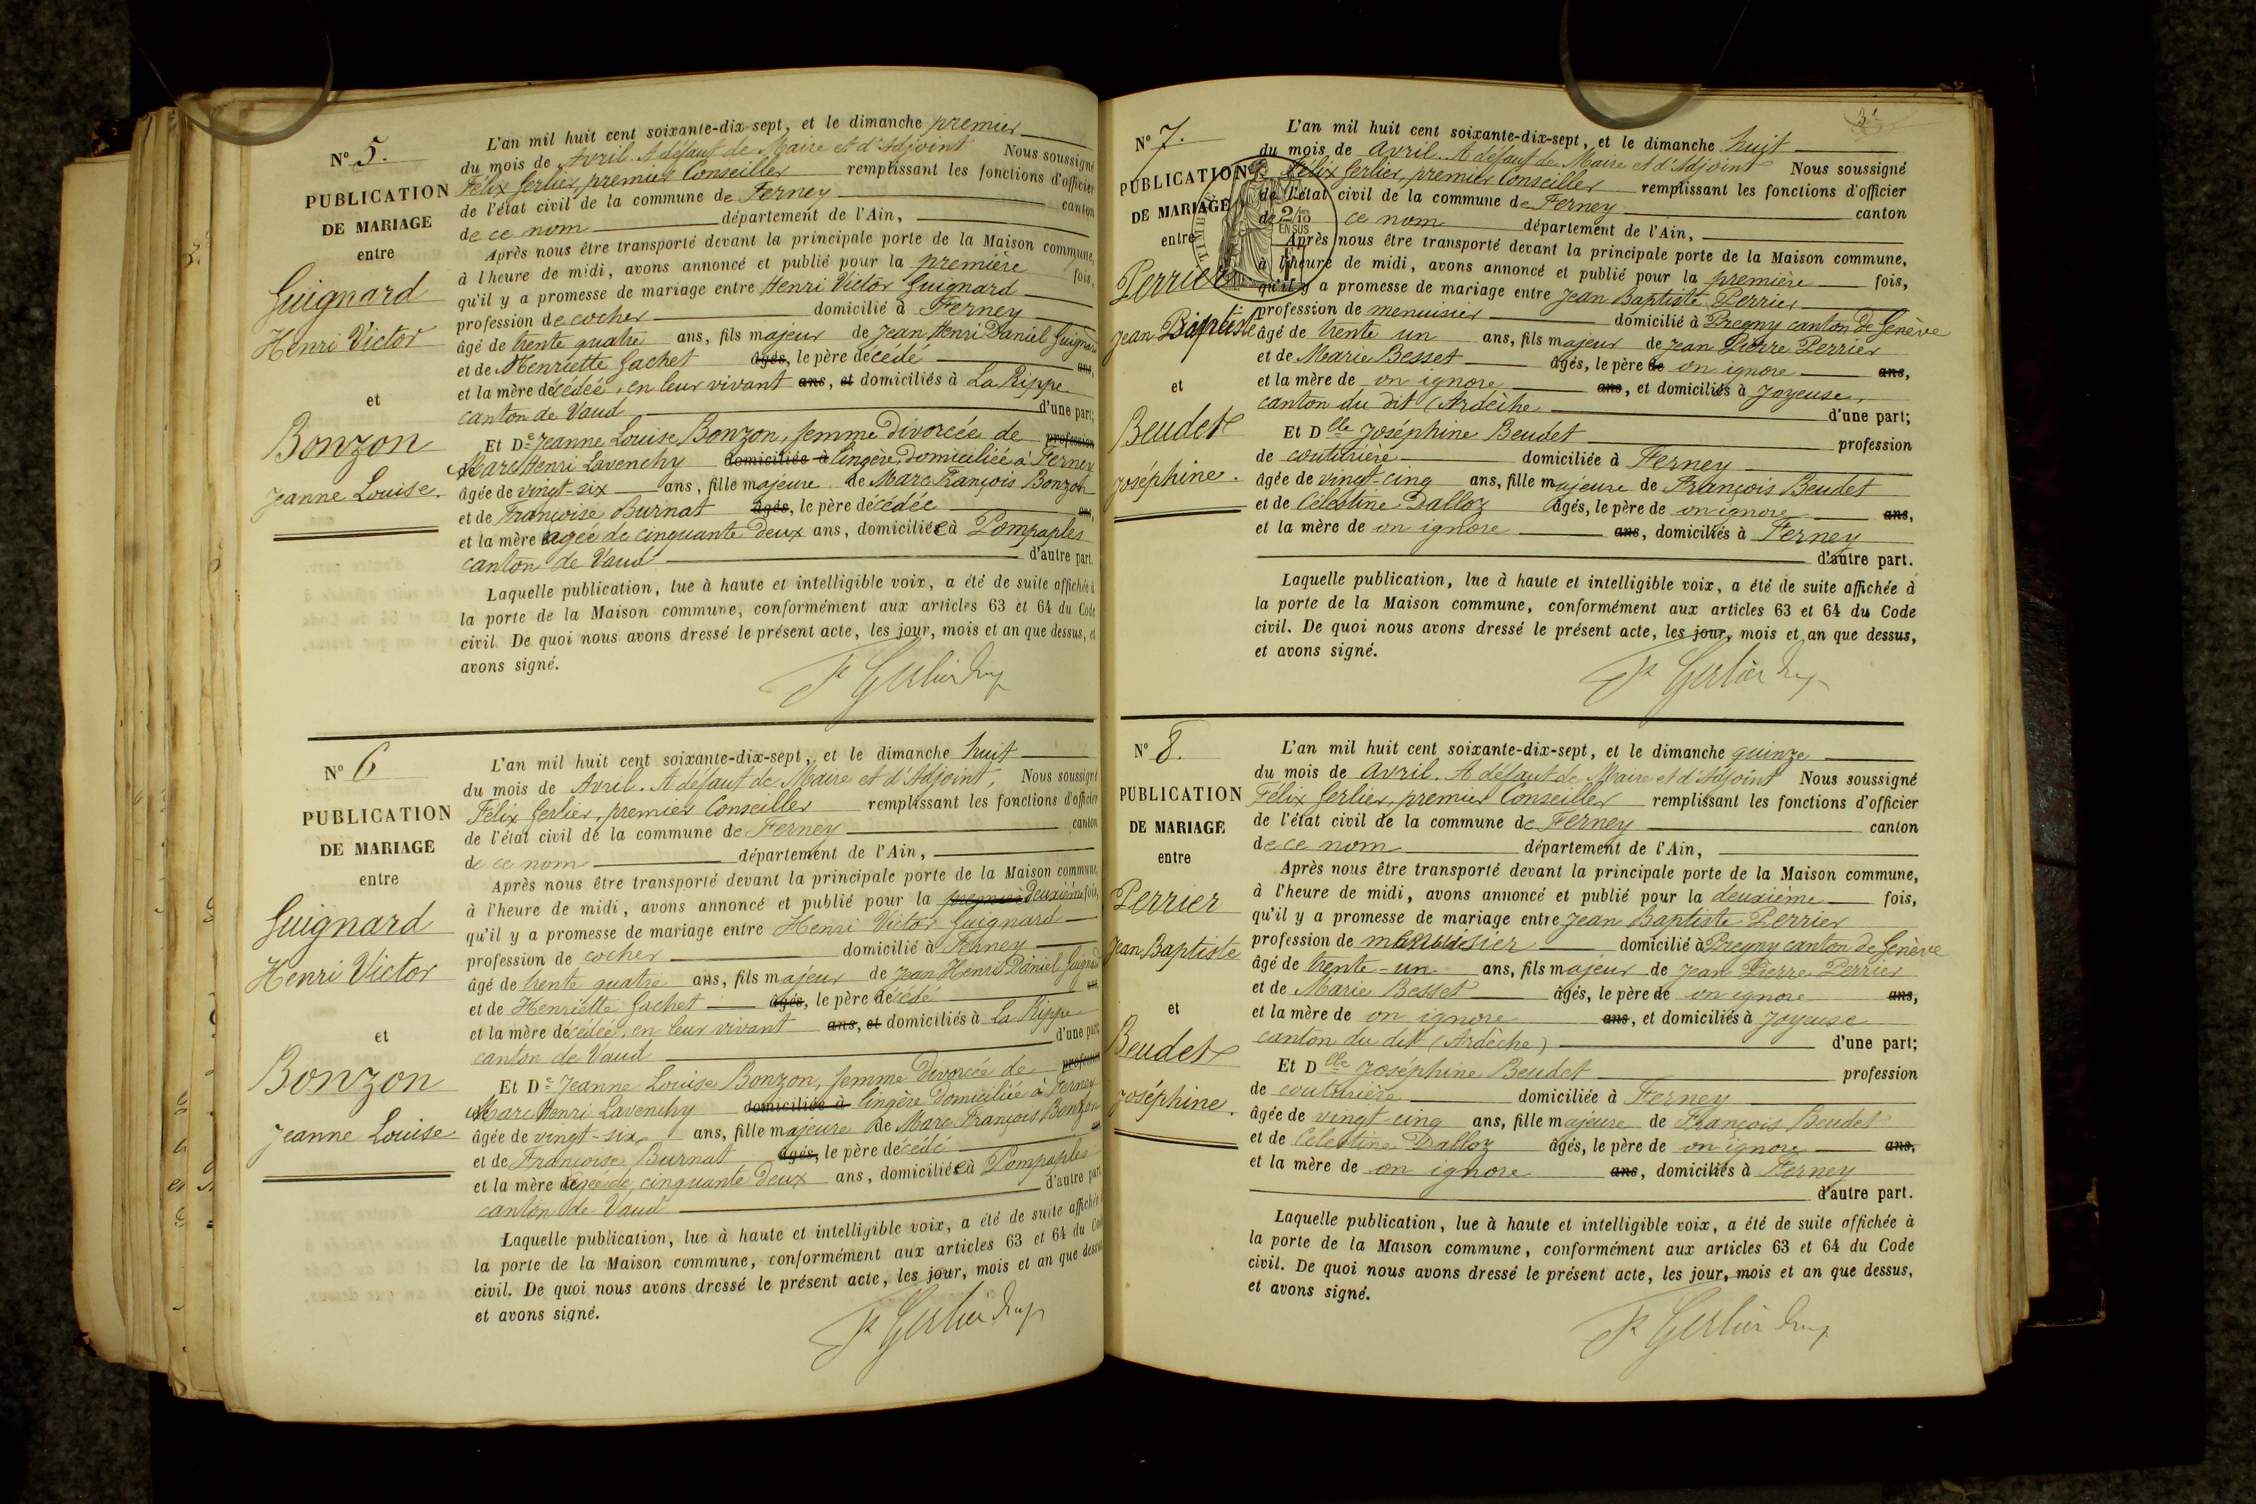 N° 5.
PUBLICATION
DE MARIAGE
entre
Guignard
Henri Victor
et
Bonzon
Jeanne Louise.
L'an mil huit cent soixante-dix-sept, et le dimanche premier
du mois de Avril. A défaut de Maire et d'Adjoint Nous soussigné
Félix Gerlier, premier Conseiller remplissant les fonctions d'officier
de l'état civil de la commune de Ferney canton
de ce nom département de l'Ain,
Après nous être transporté devant la principale porte de la Maison commune,
à l'heure de midi, avons annoncé et publié pour la première fois,
qu'il y a promesse de mariage entre Henri Victor Guignard
profession de cocher domicilié à Ferney
âgé de trente quatre ans, fils majeur de Jean Henri Daniel Guignard
et de Henriette Gachet âgés, le père décédé ans,
et la mère décédée, en leur vivant ans, et domiciliés à La Rippe
canton de Vaud d'une part;
Et De Jeanne Louise Bonzon, femme divorcée de profession
de Marc Henri Lavenchy domiciliée à lingère, domiciliée à Ferney
âgée de vingt-six ans, fille majeure de Marc François Bonzon
et de Françoise Burnat âgés, le père décédée ans,
et la mère âgée de cinquante deux ans, domiciliée à Pompaples
canton de Vaud d'autre part.
Laquelle publication, lue à haute et intelligible voix, a été de suite affichée à
la porte de la Maison commune, conformément aux articles 63 et 64 du Code
civil. De quoi nous avons dressé le présent acte, les jour, mois et an que dessus, et
avons signé.
N° 6
PUBLICATION
DE MARIAGE
entre
Guignard
Henri Victor
et
Bonzon
Jeanne Louise
L'an mil huit cent soixante-dix-sept, et le dimanche huit
du mois de Avril. A défaut de Maire et d'Adjoint, Nous soussigné
Félix Gerlier, premier Conseiller remplissant les fonctions d'officier
de l'état civil de la commune de Ferney canton
de ce nom département de l'Ain,
Après nous être transporté devant la principale porte de la Maison commune,
à l'heure de midi, avons annoncé et publié pour la première deuxième fois,
qu'il y a promesse de mariage entre Henri Victor Guignard
profession de cocher domicilié à Ferney
âgé de trente quatre ans, fils majeur de Jean Henri Daniel Guignard
et de Henriette Gachet âgés, le père décédé ans
et la mère décédée, en leur vivant ans, et domiciliés à La Rippe
canton de Vaud d'une part
Et De Jeanne Louise Bonzon, femme divorcée de profession
de Marc Henri Lavenchy domiciliée à lingère domiciliée à Ferney
âgée de vingt-six ans, fille majeure de Marc François Bonzon
et de Françoise Burnat âgés, le père décédé
et la mère âgée de cinquante deux ans, domiciliée à Pompaples
canton de Vaud d'autre part
Laquelle publication, lue à haute et intelligible voix, a été de suite affichée
la porte de la Maison commune, conformément aux articles 63 et 64 du Code
civil. De quoi nous avons dressé le présent acte, les jour, mois et an que dessus
et avons signé.
N° 7.
PUBLICATION
DE MARIAGE
entre
Perrier
Jean Baptiste
et
Beudet
Joséphine.
2/10
EN SUS
L'an mil huit cent soixante-dix-sept, et le dimanche huit
du mois de Avril. A défaut de Maire et d'Adjoint Nous soussigné
Félix Gerlier, premier Conseiller remplissant les fonctions d'officier
de l'état civil de la commune de Ferney canton
de ce nom département de l'Ain,
Après nous être transporté devant la principale porte de la Maison commune,
à l'heure de midi, avons annoncé et publié pour la première fois,
qu'il y a promesse de mariage entre Jean Baptiste Perrier
profession de menuisier domicilié à Pregny canton de Genève
âgé de trente un ans, fils majeur de Jean Pierre Perrier
et de Marie Besset âgés, le père de on ignore ans,
et la mère de on ignore ans, et domiciliés à Joyeuse,
canton du dit (Ardèche d'une part;
Et Dlle Joséphine Beudet profession
de couturière domiciliée à Ferney
âgée de vingt-cinq ans, fille majeure de François Beudet
et de Célestine Dalloz âgés, le père de on ignore ans,
et la mère de on ignore ans, domiciliés à Ferney
d'autre part.
Laquelle publication, lue à haute et intelligible voix, a été de suite affichée à
la porte de la Maison commune, conformément aux articles 63 et 64 du Code
civil. De quoi nous avons dressé le présent acte, les jour, mois et an que dessus,
et avons signé.
N° 8.
PUBLICATION
DE MARIAGE
entre
Perrier
Jean Baptiste
et
Beudet
Joséphine.
L'an mil huit cent soixante-dix-sept, et le dimanche quinze
du mois de Avril. A défaut de Maire et d'Adjoint Nous soussigné
Félix Gerlier, premier Conseiller remplissant les fonctions d'officier
de l'état civil de la commune de Ferney canton
de ce nom département de l'Ain,
Après nous être transporté devant la principale porte de la Maison commune,
à l'heure de midi, avons annoncé et publié pour la deuxième fois,
qu'il y a promesse de mariage entre Jean Baptiste Perrier
profession de menuisier domicilié à Pregny canton de Genève
âgé de trente-un ans, fils majeur de Jean Pierre Perrier
et de Marie Besset âgés, le père de on ignore ans,
et la mère de on ignore ans, et domiciliés à Joyeuse
canton du dit (Ardèche) d'une part;
Et Dlle Joséphine Beudet profession
de couturière domiciliée à Ferney
âgée de vingt-cinq ans, fille majeure de François Beudet
et de Célestine Dalloz âgés, le père de on ignore ans,
et la mère de on ignore ans, domiciliés à Ferney
d'autre part.
Laquelle publication, lue à haute et intelligible voix, a été de suite affichée à
la porte de la Maison commune, conformément aux articles 63 et 64 du Code
civil. De quoi nous avons dressé le présent acte, les jour, mois et an que dessus,
et avons signé.